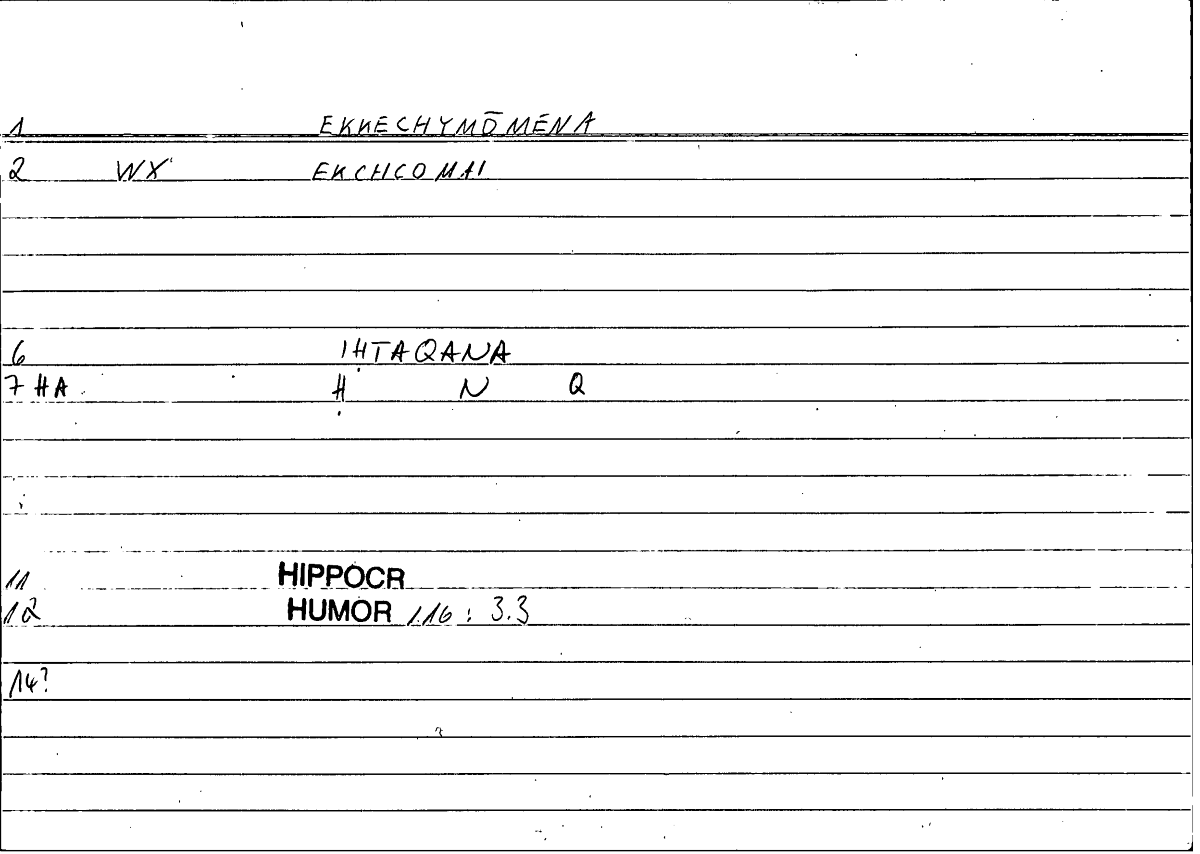 1 EKKECHYMŌMÉNA
2 WX EKCHCOMAI
6 IḤTAQANA
7 HA Ḥ N Q
11 HIPPOCR
12 HUMOR 1.16 : 3.3
14?